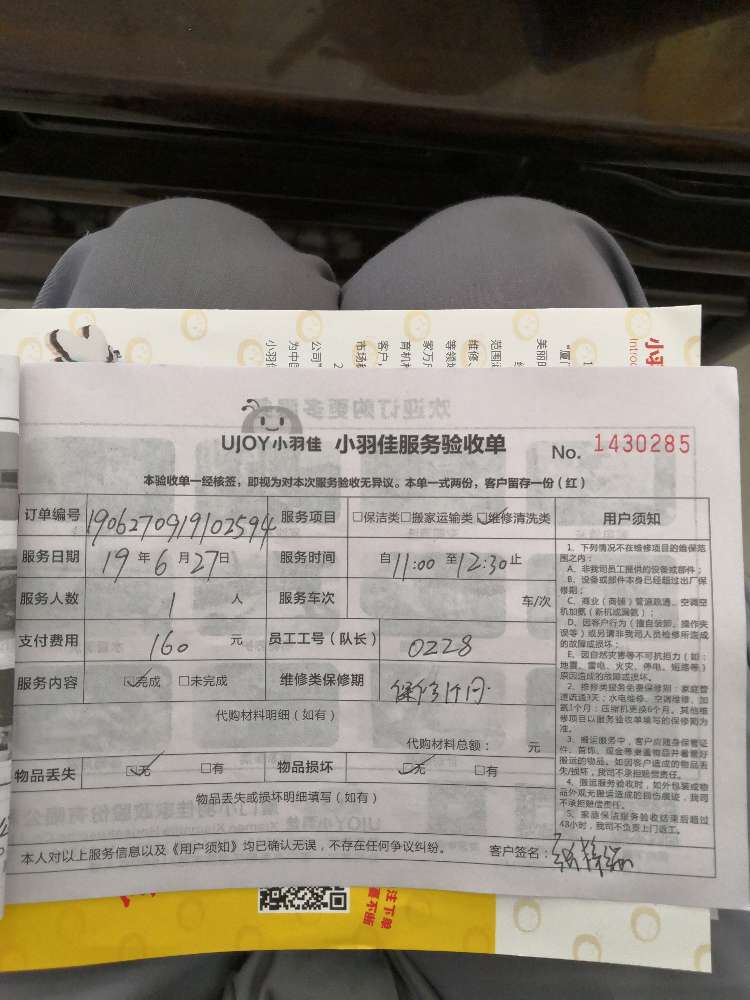 小羽
Intro
"厦门
美丽田
范围涵
维修、
等领域
家万户
客户,
育机构
市场
公司"
为中国
小羽佳
UJOY小羽佳 小羽佳服务验收单 No. 1430285
本验收单一经核签，即视为对本次服务验收无异议。本单一式两份，客户留存一份（红）
订单编号 1906270919102594 服务项目 □保洁类□搬家运输类☑维修清洗类 用户须知
服务日期 19年6月27日 服务时间 自11:00至12:30止
服务人数 1 人 服务车次 车/次
支付费用 160 元 员工工号（队长） 0228
服务内容 ☑完成 □未完成 维修类保修期
代购材料明细（如有）
代购材料总额： 元
物品丢失 ☑无 □有 物品损坏 ☑无 □有
物品丢失或损坏明细填写（如有）
本人对以上服务信息以及《用户须知》均已确认无误，不存在任何争议纠纷。 客户签名：
1、下列情况不在维修项目的维保范
围之内：
A、非我司员工提供的设备或部件；
B、设备或部件本身已经超过出厂保
修期；
C、商业（商铺）管道疏通、空调空
机加氨（新机或漏氨）；
D、因客户行为（擅自装卸、操作失
误等）或另请非我司人员检修所造成
的故障或损坏；
E、因自然灾害等不可抗拒力（如：
地震、雷电、火灾、停电、短路等）
原因造成的故障或损坏。
2、维修类服务免费保修期：家庭管
道疏通3天；水电维修、空调维修、加
氨1个月；压缩机更换6个月。其他维
修项目以服务验收单填写的保修期为
准。
3、搬运服务中，客户应随身保管证
件、首饰、现金等贵重物品并看管好
搬运的物品。如因客户造成的物品丢
失/损坏，我司不承担赔偿责任。
4、搬运服务验收时，如外包装或物
品外观无搬运造成的损伤痕迹，我司
不承担赔偿责任。
5、家庭保洁服务验收结束后超过
48小时，我司不负责上门返工。
注下单
喜不断